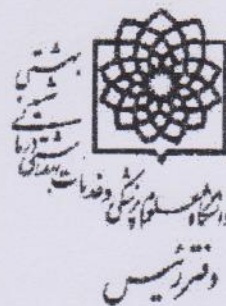 دانشگاه علوم پزشکی و خدمات بهداشتی درمانی شهید بهشتی
دفتر رئیس